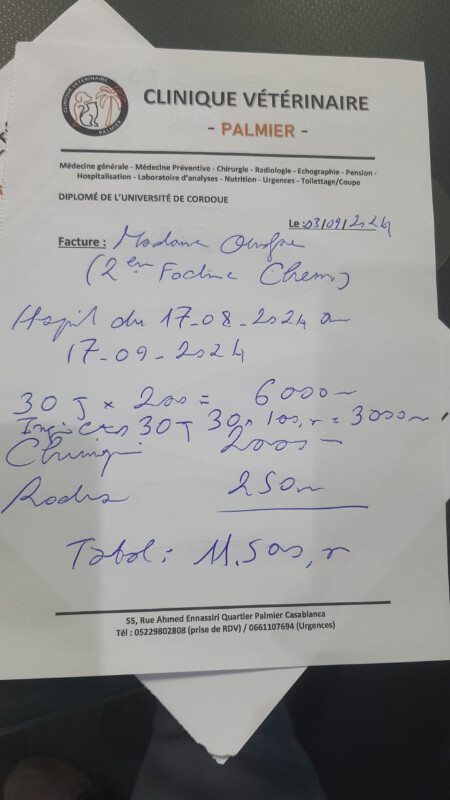 CLINIQUE VÉTÉRINAIRE PALMIER
CLINIQUE VÉTÉRINAIRE
- PALMIER -
Médecine générale - Médecine Préventive - Chirurgie - Radiologie - Echographie - Pension -
Hospitalisation - Laboratoire d'analyses - Nutrition - Urgences - Toilettage/Coupe
DIPLOMÉ DE L'UNIVERSITÉ DE CORDOUE
Le : 03/09/2024
Facture : Madame
(2em
Hospil du 17-08-2024 au
17-09-2024
30 J x 200 = 6000
30 J 30 x 100, = 3000
2000
250
Total : 11.
55, Rue Ahmed Ennassiri Quartier Palmier Casablanca
Tél : 05229802808 (prise de RDV) / 0661107694 (Urgences)